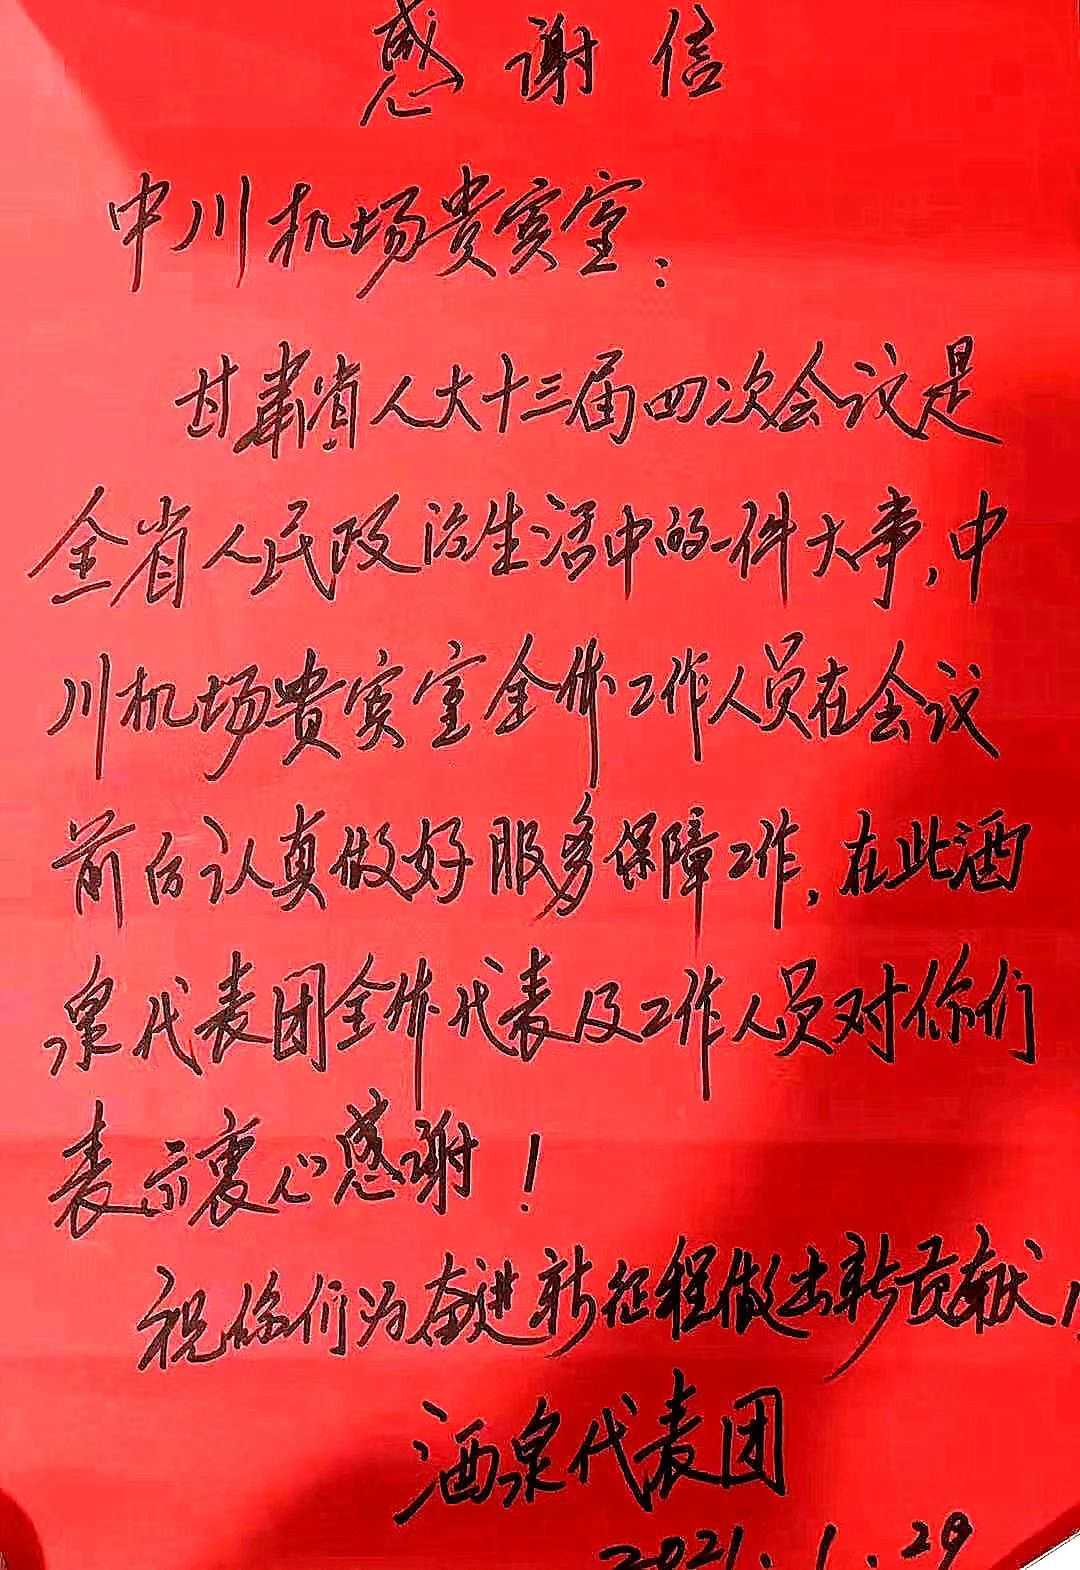 感谢信
中川机场贵宾室:
甘肃省人大十三届四次会议是
全省人民政治生活中的一件大事,中
川机场贵宾室全体工作人员在会议
前后认真做好服务保障工作,在此酒
泉代表团全体代表及工作人员对你们
表示衷心感谢!
祝你们为奋进新征程做出新贡献!
酒泉代表团
2021.1.29